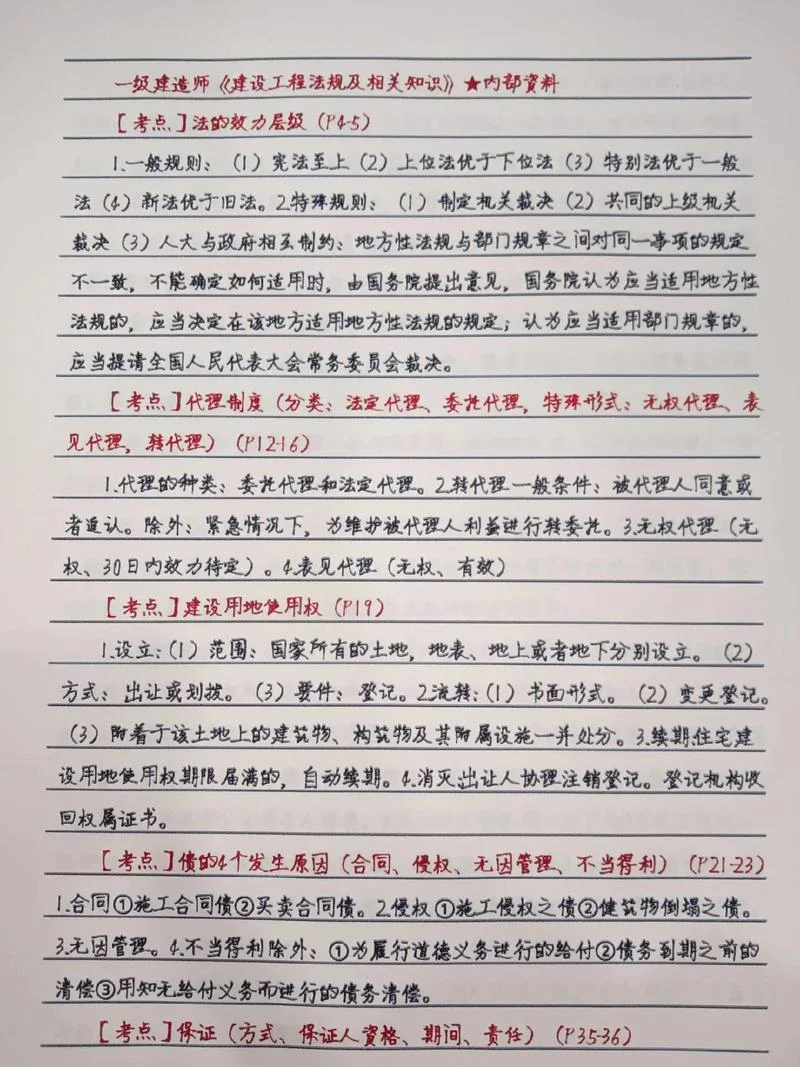 一级建造师《建设工程法规及相关知识》★内部资料
[考点]法的效力层级(P4-5)
1.一般规则:(1)宪法至上(2)上位法优于下位法(3)特别法优于一般
法(4)新法优于旧法。2.特殊规则:(1)制定机关裁决(2)共同的上级机关
裁决(3)人大与政府相互制约:地方性法规与部门规章之间对同一事项的规定
不一致,不能确定如何适用时,由国务院提出意见,国务院认为应当适用地方性
法规的,应当决定在该地方适用地方性法规的规定;认为应当适用部门规章的,
应当提请全国人民代表大会常务委员会裁决。
[考点]代理制度(分类:法定代理、委托代理,特殊形式:无权代理、表
见代理,转代理)(P12-16)
1.代理的种类:委托代理和法定代理。2.转代理一般条件:被代理人同意或
者追认。除外:紧急情况下,为维护被代理人利益进行转委托。3.无权代理(无
权、30日内效力待定)。4.表见代理(无权、有效)
[考点]建设用地使用权(P19)
1.设立:(1)范围:国家所有的土地,地表、地上或者地下分别设立。(2)
方式:出让或划拨。(3)要件:登记。2.流转:(1)书面形式。(2)变更登记。
(3)附着于该土地上的建筑物、构筑物及其附属设施一并处分。3.续期.住宅建
设用地使用权期限届满的,自动续期。4.消灭.出让人协理注销登记。登记机构收
回权属证书。
[考点]债的4个发生原因(合同、侵权、无因管理、不当得利)(P21-23)
1.合同①施工合同债②买卖合同债。2.侵权①施工侵权之债②健筑物倒塌之债。
3.无因管理。4.不当得利除外:①为雇行道德义务进行的给付②债务到期之前的
清偿③用知无给付义务而进行的债务清偿。
[考点]保证(方式、保证人资格、期间、责任)(P35-36)